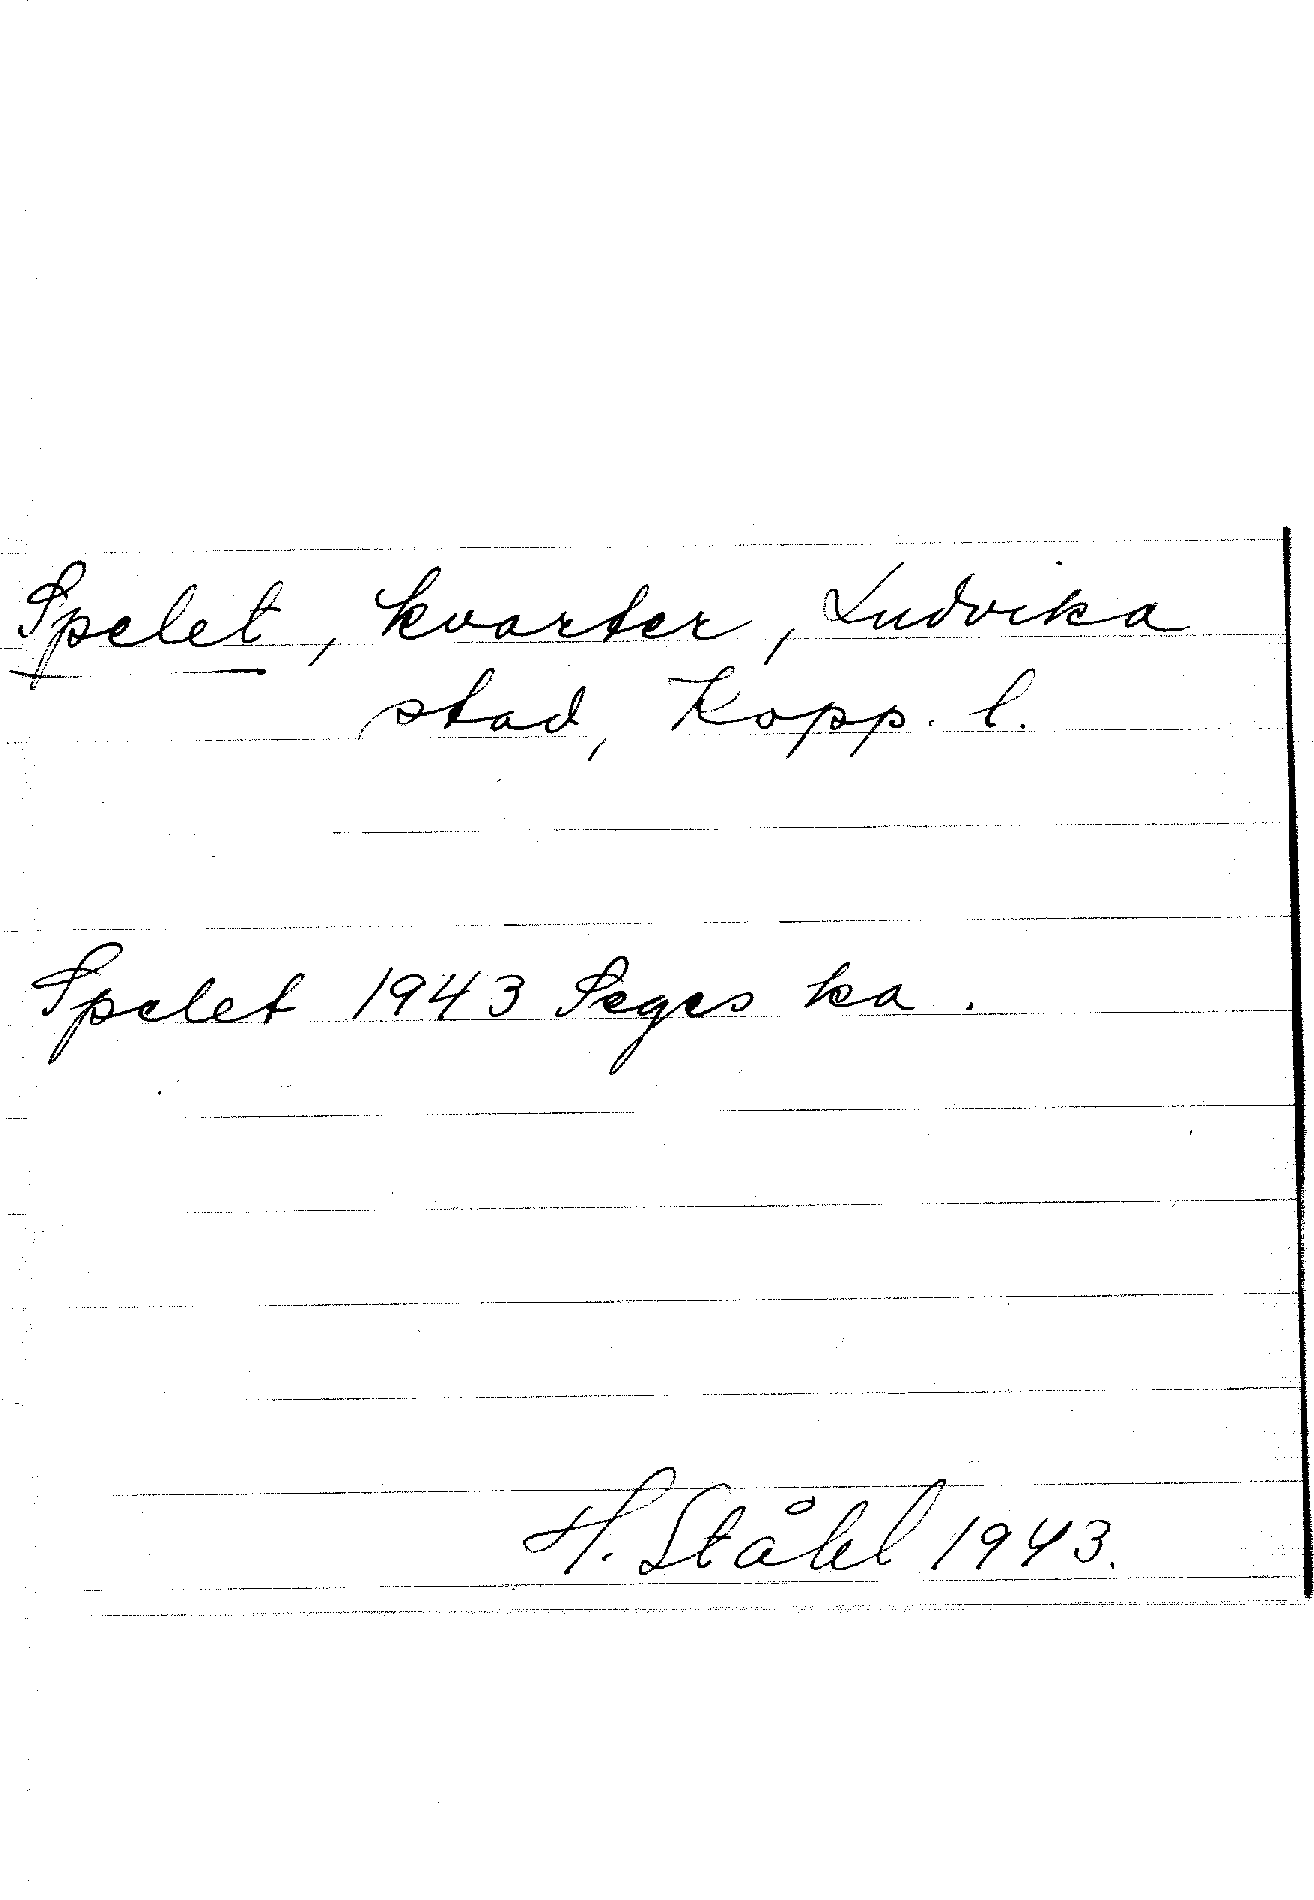 Spelet, kvarter, Ludvika
stad, Kopp. l.
Spelet 1943 Seges ka.
H. Ståhl 1943.